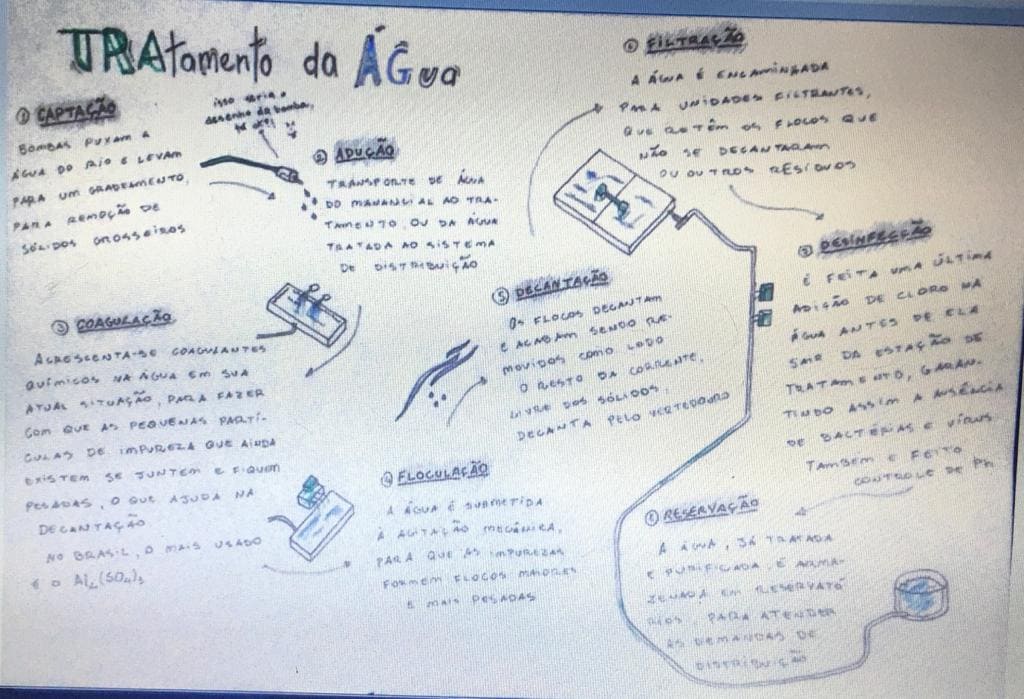 TRAtamento da ÁGua
① CAPTAÇÃO
BOMBAS PUXAM A
ÁGUA DO RIO E LEVAM
PARA UM GRADEAMENTO,
PARA REMOÇÃO DE
SÓLIDOS GROSSEIROS
isso seria o
desenho da bomba,
tá ok?!
② ADUÇÃO
TRANSPORTE DE ÁGUA
DO MANANCIAL AO TRA-
TAMENTO OU DA ÁGUA
TRATADA AO SISTEMA
DE DISTRIBUIÇÃO
③ COAGULAÇÃO
ACRESCENTA-SE COAGULANTES
QUÍMICOS NA ÁGUA EM SUA
ATUAL SITUAÇÃO, PARA FAZER
COM QUE AS PEQUENAS PARTÍ-
CULAS DE IMPUREZA QUE AINDA
EXISTEM SE JUNTEM E FIQUEM
PESADAS, O QUE AJUDA NA
DECANTAÇÃO
NO BRASIL, O MAIS USADO
É O Al₂(SO₄)₃
④ FLOCULAÇÃO
A ÁGUA É SUBMETIDA
À AGITAÇÃO MECÂNICA,
PARA QUE AS IMPUREZAS
FORMEM FLOCOS MAIORES
E MAIS PESADAS
⑤ DECANTAÇÃO
OS FLOCOS DECANTAM
E ACABAM SENDO RE-
MOVIDOS COMO LODO
O RESTO DA CORRENTE,
LIVRE DOS SÓLIDOS,
DECANTA PELO VERTEDOURO
⑥ FILTRAÇÃO
A ÁGUA É ENCAMINHADA
PARA UNIDADES FILTRANTES,
QUE RETÊM OS FLOCOS QUE
NÃO SE DECANTARAM
OU OUTROS RESÍDUOS
⑦ DESINFECÇÃO
É FEITA UMA ÚLTIMA
ADIÇÃO DE CLORO NA
ÁGUA ANTES DE ELA
SAIR DA ESTAÇÃO DE
TRATAMENTO, GARAN-
TINDO ASSIM A AUSÊNCIA
DE BACTÉRIAS E VÍRUS.
TAMBEM E FEITO
CONTROLE DE PH
⑧ RESERVAÇÃO
A ÁGUA, JÁ TRATADA
E PURIFICADA, É ARMA-
ZENADA EM RESERVATÓ
RIOS, PARA ATENDER
ÀS DEMANDAS DE
DISTRIBUIÇÃO